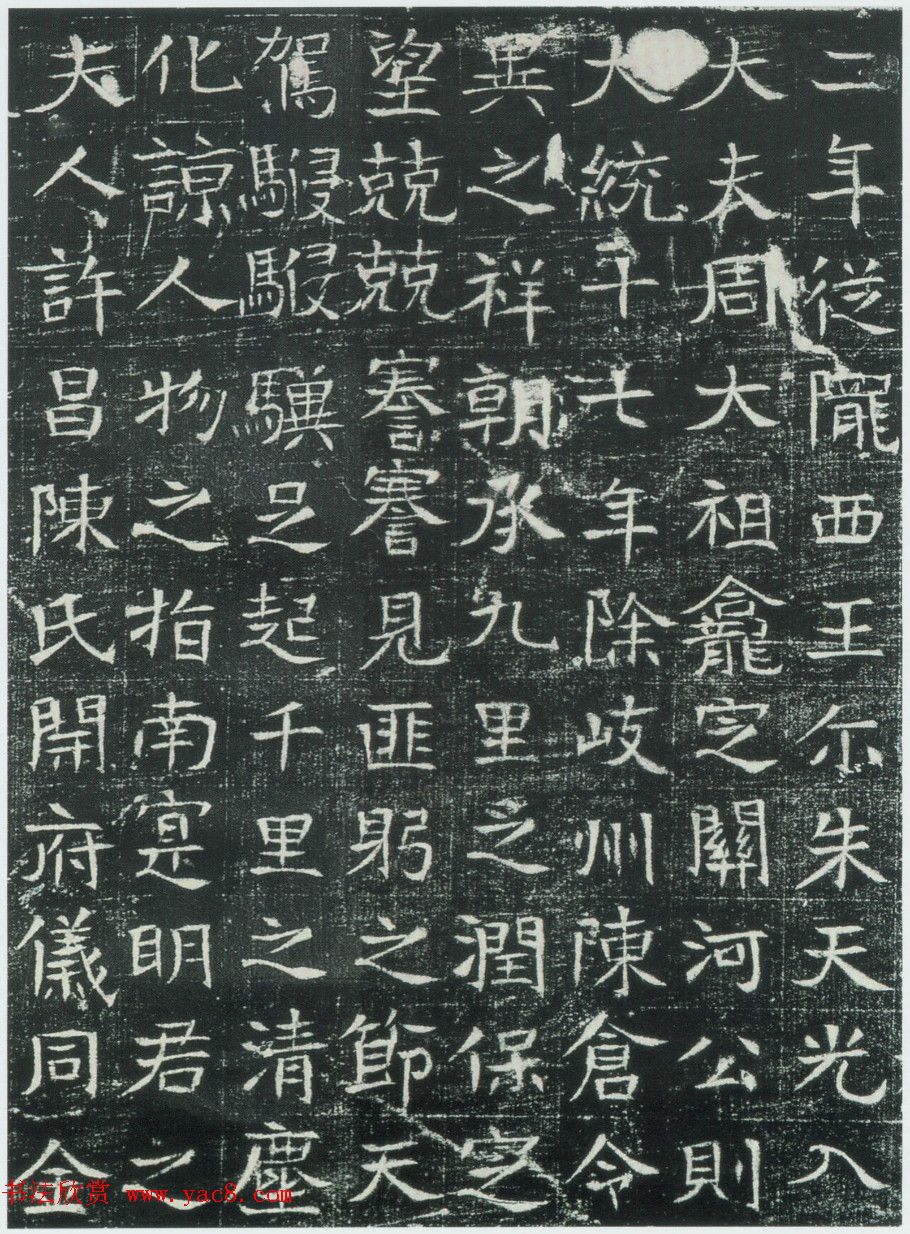 二年從隴西王尒朱天光入
大夫周大祖龕定關河公則
大統十七年除岐州陳倉令
異之祥朝承九里之潤保定
望兢兢謇謇見匪躬之節天
駕駸駸驥足起千里之清塵
化諒人物之指南寔明君之
夫人許昌陳氏開府儀同金
书法欣赏 www.yac8.com